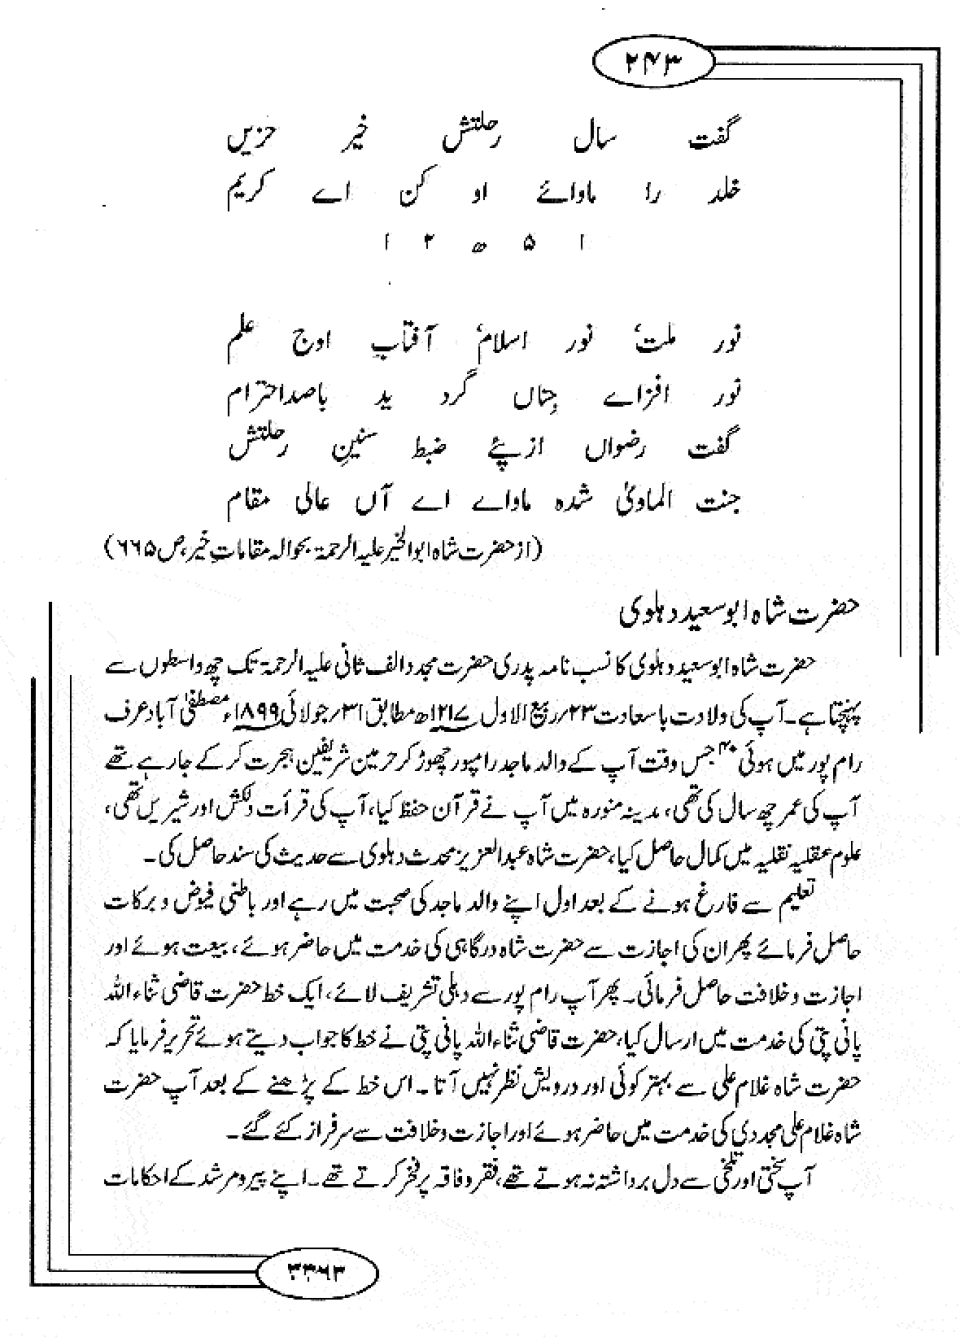 ۲۴۳
گفت سال رحلتش خیر حزیں
خلد را ماوائے او کن اے کریم
ا ۵ ھ ۲ ا
نور ملت، نور اسلام، آفتاب اوج علم
نور افزاے جِناں گرد ید باصد احترام
گفت رضواں از پئے ضبط سنینِ رحلتش
جنت الماویٰ شدہ ماواے اے آں عالی مقام
(از حضرت شاہ ابوالخیر علیہ الرحمۃ بحوالہ مقاماتِ خیر، ص ۶۶۵)
حضرت شاہ ابوسعید دہلوی
حضرت شاہ ابوسعید دہلوی کا نسب نامہ پدری حضرت مجدد الف ثانی علیہ الرحمۃ تک چھ واسطوں سے
پہنچتا ہے۔ آپ کی ولادت باسعادت ۲۳/ربیع الاول ۱۲۱۷ھ مطابق ۳۱/جولائی ۱۸۹۹ء مصطفیٰ آباد عرف
رام پور میں ہوئی ۴۰ جس وقت آپ کے والد ماجد رامپور چھوڑ کر حرمین شریفین ہجرت کر کے جارہے تھے
آپ کی عمر چھ سال کی تھی، مدینہ منورہ میں آپ نے قرآن حفظ کیا، آپ کی قرأت دلکش اور شیریں تھی،
علوم عقلیہ نقلیہ میں کمال حاصل کیا، حضرت شاہ عبدالعزیز محدث دہلوی سے حدیث کی سند حاصل کی۔
تعلیم سے فارغ ہونے کے بعد اول اپنے والد ماجد کی صحبت میں رہے اور باطنی فیوض و برکات
حاصل فرمائے پھر ان کی اجازت سے حضرت شاہ درگاہی کی خدمت میں حاضر ہوئے، بیعت ہوئے اور
اجازت و خلافت حاصل فرمائی۔ پھر آپ رام پور سے دہلی تشریف لائے، ایک خط حضرت قاضی ثناء اللہ
پانی پتی کی خدمت میں ارسال کیا، حضرت قاضی ثناء اللہ پانی پتی نے خط کا جواب دیتے ہوئے تحریر فرمایا کہ
حضرت شاہ غلام علی سے بہتر کوئی اور درویش نظر نہیں آتا۔ اس خط کے پڑھنے کے بعد آپ حضرت
شاہ غلام علی مجددی کی خدمت میں حاضر ہوئے اور اجازت و خلافت سے سرفراز کئے گئے۔
آپ سختی اور تلخی سے دل برداشتہ نہ ہوتے تھے، فقر و فاقہ پر فخر کرتے تھے۔ اپنے پیر و مرشد کے احکامات
۳۳۶۳